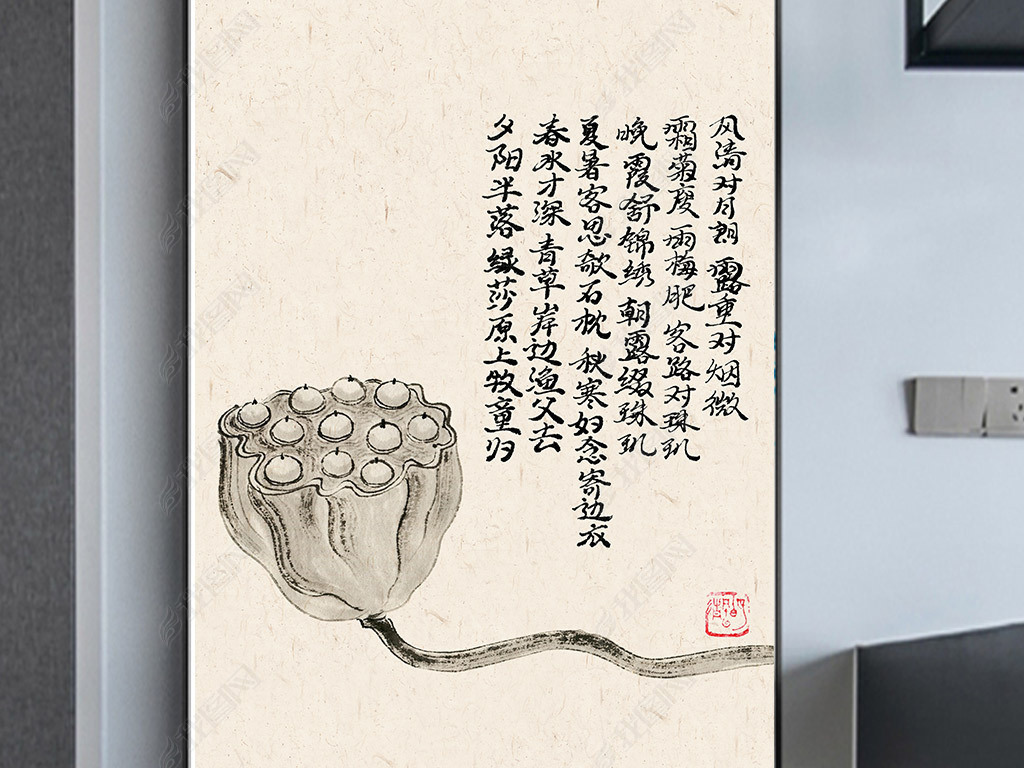 风清对月朗 露重对烟微
霜菊瘦 雨梅肥 客路对珠玑
晚霞舒锦绣 朝露缀珠玑
夏暑客思欹石枕 秋寒妇念寄边衣
春水才深 青草岸边渔父去
夕阳半落 绿莎原上牧童归